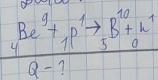 ₄Be⁹ + ₁p¹ → ₅B¹⁰ + ₀n¹
Q - ?